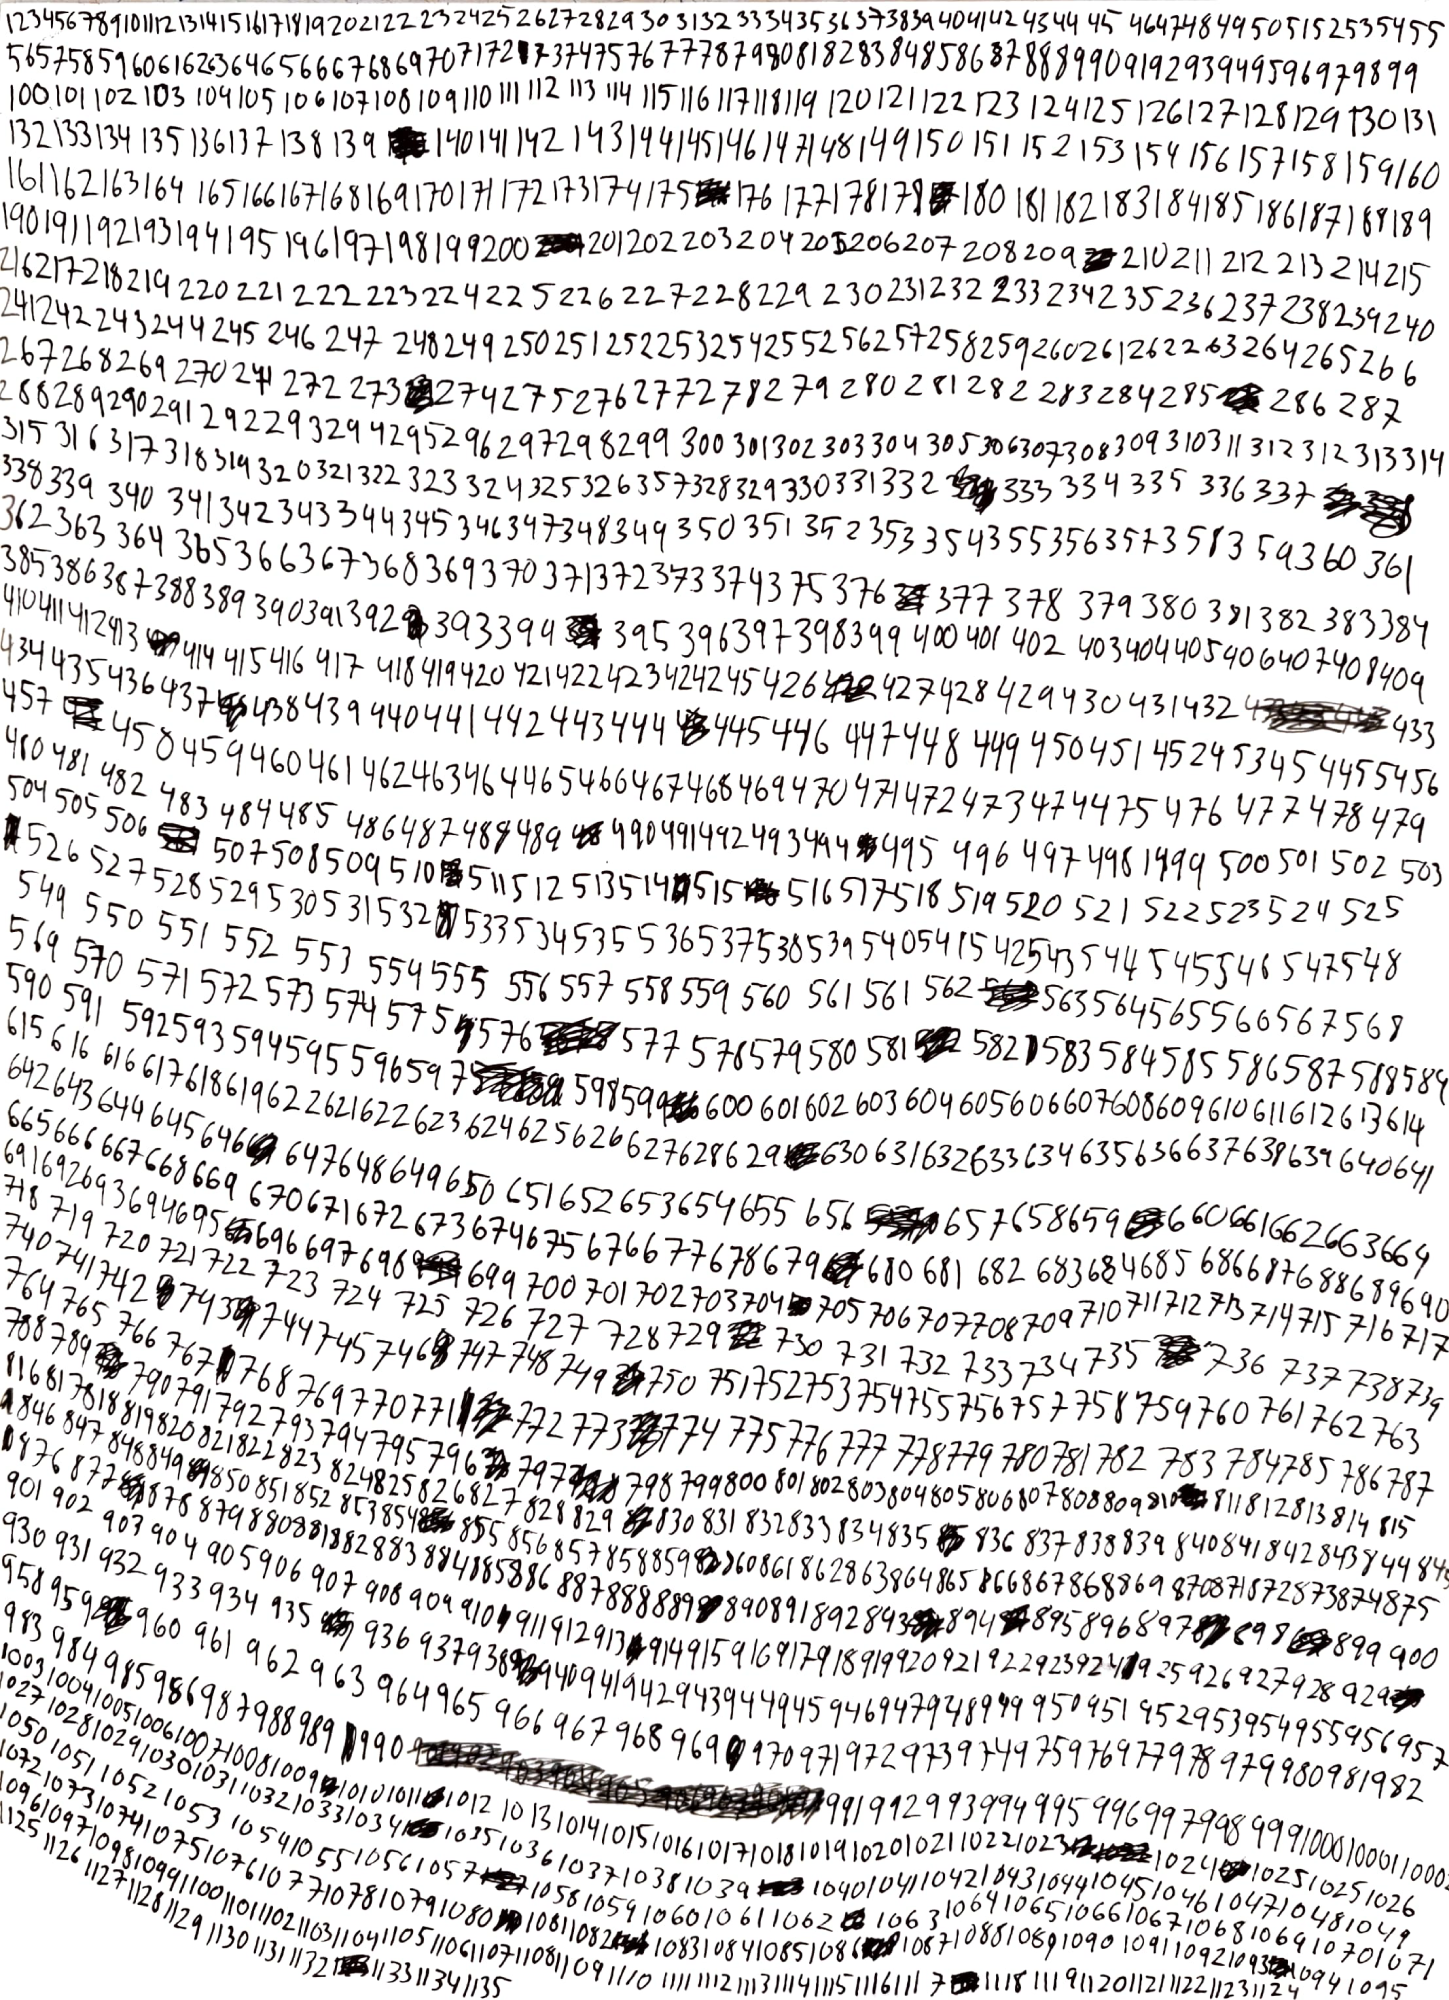 12345678910111213141516171819202122232425262728293031323334353637383940414243444546474849505152535455
5657585960616263646566676869707172737475767778798081828384858687888990919293949596979899
100101102103104105106107108109110111112113114115116117118119120121122123124125126127128129130131
132133134135136137138139140141142143144145146147148149150151152153154156157158159160
161162163164165166167168169170171172173174175176177178178180181182183184185186187188189
190191192193194195196197198199200201202203204205206207208209210211212213214215
216217218219220221222223224225226227228229230231232233234235236237238239240
241242243244245246247248249250251252253254255256257258259260261262263264265266
267268269270271272273274275276277278279280281282283284285286287
288289290291292293294295296297298299300301302303304305306307308309310311312312313314
315316317318319320321322323324325326357328329330331332333334335336337
338339340341342343344345346347348349350351352353354355356357358359360361
362363364365366367368369370371372373374375376377378379380381382383384
385386387388389390391392393394395396397398399400401402403404405406407408409
410411412413414415416417418419420421422423424245426427428429430431432433
434435436437438439440441442443444445446447448449450451452453454455456
457458459460461462463464465466467468469470471472473474475476477478479
480481482483484485486487488489490491492493494495496497498499500501502503
504505506507508509510511512513514515516517518519520521522523524525
526527528529530531532533534535536537538539540541542543544545546547548
549550551552553554555556557558559560561561562563564565566567568
569570571572573574575576577578579580581582583584585586587588589
590591592593594595596597598599600601602603604605606607608609610611612613614
615616616617618619622621622623624625626627628629630631632633634635636637638639640641
642643644645646647648649650651652653654655656657658659660661662663664
665666667668669670671672673674675676677678679680681682683684685686687688689690
691692693694695696697698699700701702703704705706707708709710711712713714715716717
718719720721722723724725726727728729730731732733734735736737738739
740741742743744745746747748749750751752753754755756757758759760761762763
764765766767768769770771772773774775776777778779780781782783784785786787
788789790791792793794795796797798799800801802803804805806807808809810811812813814815
816817818819820821822823824825826827828829830831832833834835836837838839840841842843844845
846847848849850851852853854855856857858859860861862863864865866867868869870871872873874875
876877878879880881882883884885886887888889890891892893894895896897898899900
901902903904905906907908909910911912913914915916917918919920921922923924925926927928929
930931932933934935936937938939940941942943944945946947948949950951952953954955956957
958959960961962963964965966967968969970971972973974975976977978979980981982
98398498598698798898999099199299399499599699799899910001000110002
1003100410051006100710081009101010111012101310141015101610171018101910201021102210231024102510251026
10271028102910301031103210331034103510361037103810391040104110421043104410451046104710481049
1050105110521053105410551056105710581059106010611062106310641065106610671068106910701071
107210731074107510761077107810791080108110821083108410851086108710881089109010911092109310941095
10961097109810991100110111021103110411051106110711081109111011111112111311141115111611171118111911201121112211231124
11251126112711281129113011311132113311341135